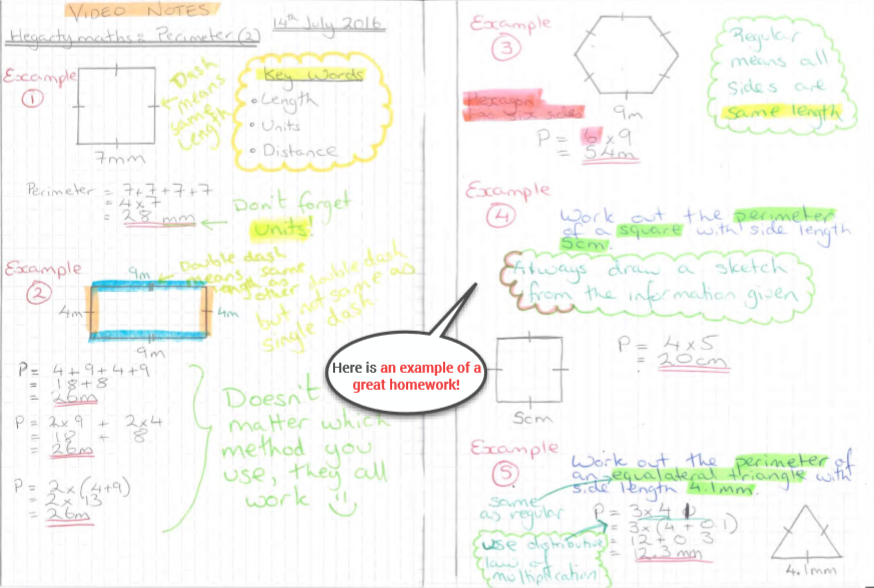 VIDEO NOTES
Hegarty maths = Perimeter (2)
14th July 2016
Example
1
7mm
Dash
means
same
length
Key Words
• Length
• Units
• Distance
Perimeter = 7+7+7+7
= 4x7
= 28 mm
Don't forget
units!
Example
2
9m
4m
4m
9m
Double dash
means same
length as
other double dash
but not same as
single dash
P = 4+9+4+9
= 18+8
= 26m
P = 2x9 + 2x4
= 18 + 8
= 26m
P = 2x(4+9)
= 2x13
= 26m
Doesn't
matter which
method you
use, they all
work
Here is an example of a
great homework!
Example
3
9m
Hexagon
has six sides
P = 6x9
= 54m
Regular
means all
sides are
same length
Example
4
Work out the perimeter
of a square with side length
5cm.
Always draw a sketch
from the information given
5cm
P = 4x5
= 20cm
Example
5
Work out the perimeter of
an equalateral triangle with
side length 4.1mm.
same
as regular
use distributive
law of
multiplication
P = 3x4
= 3x(4+0.1)
= 12+0 3
= 12.3mm
4.1mm